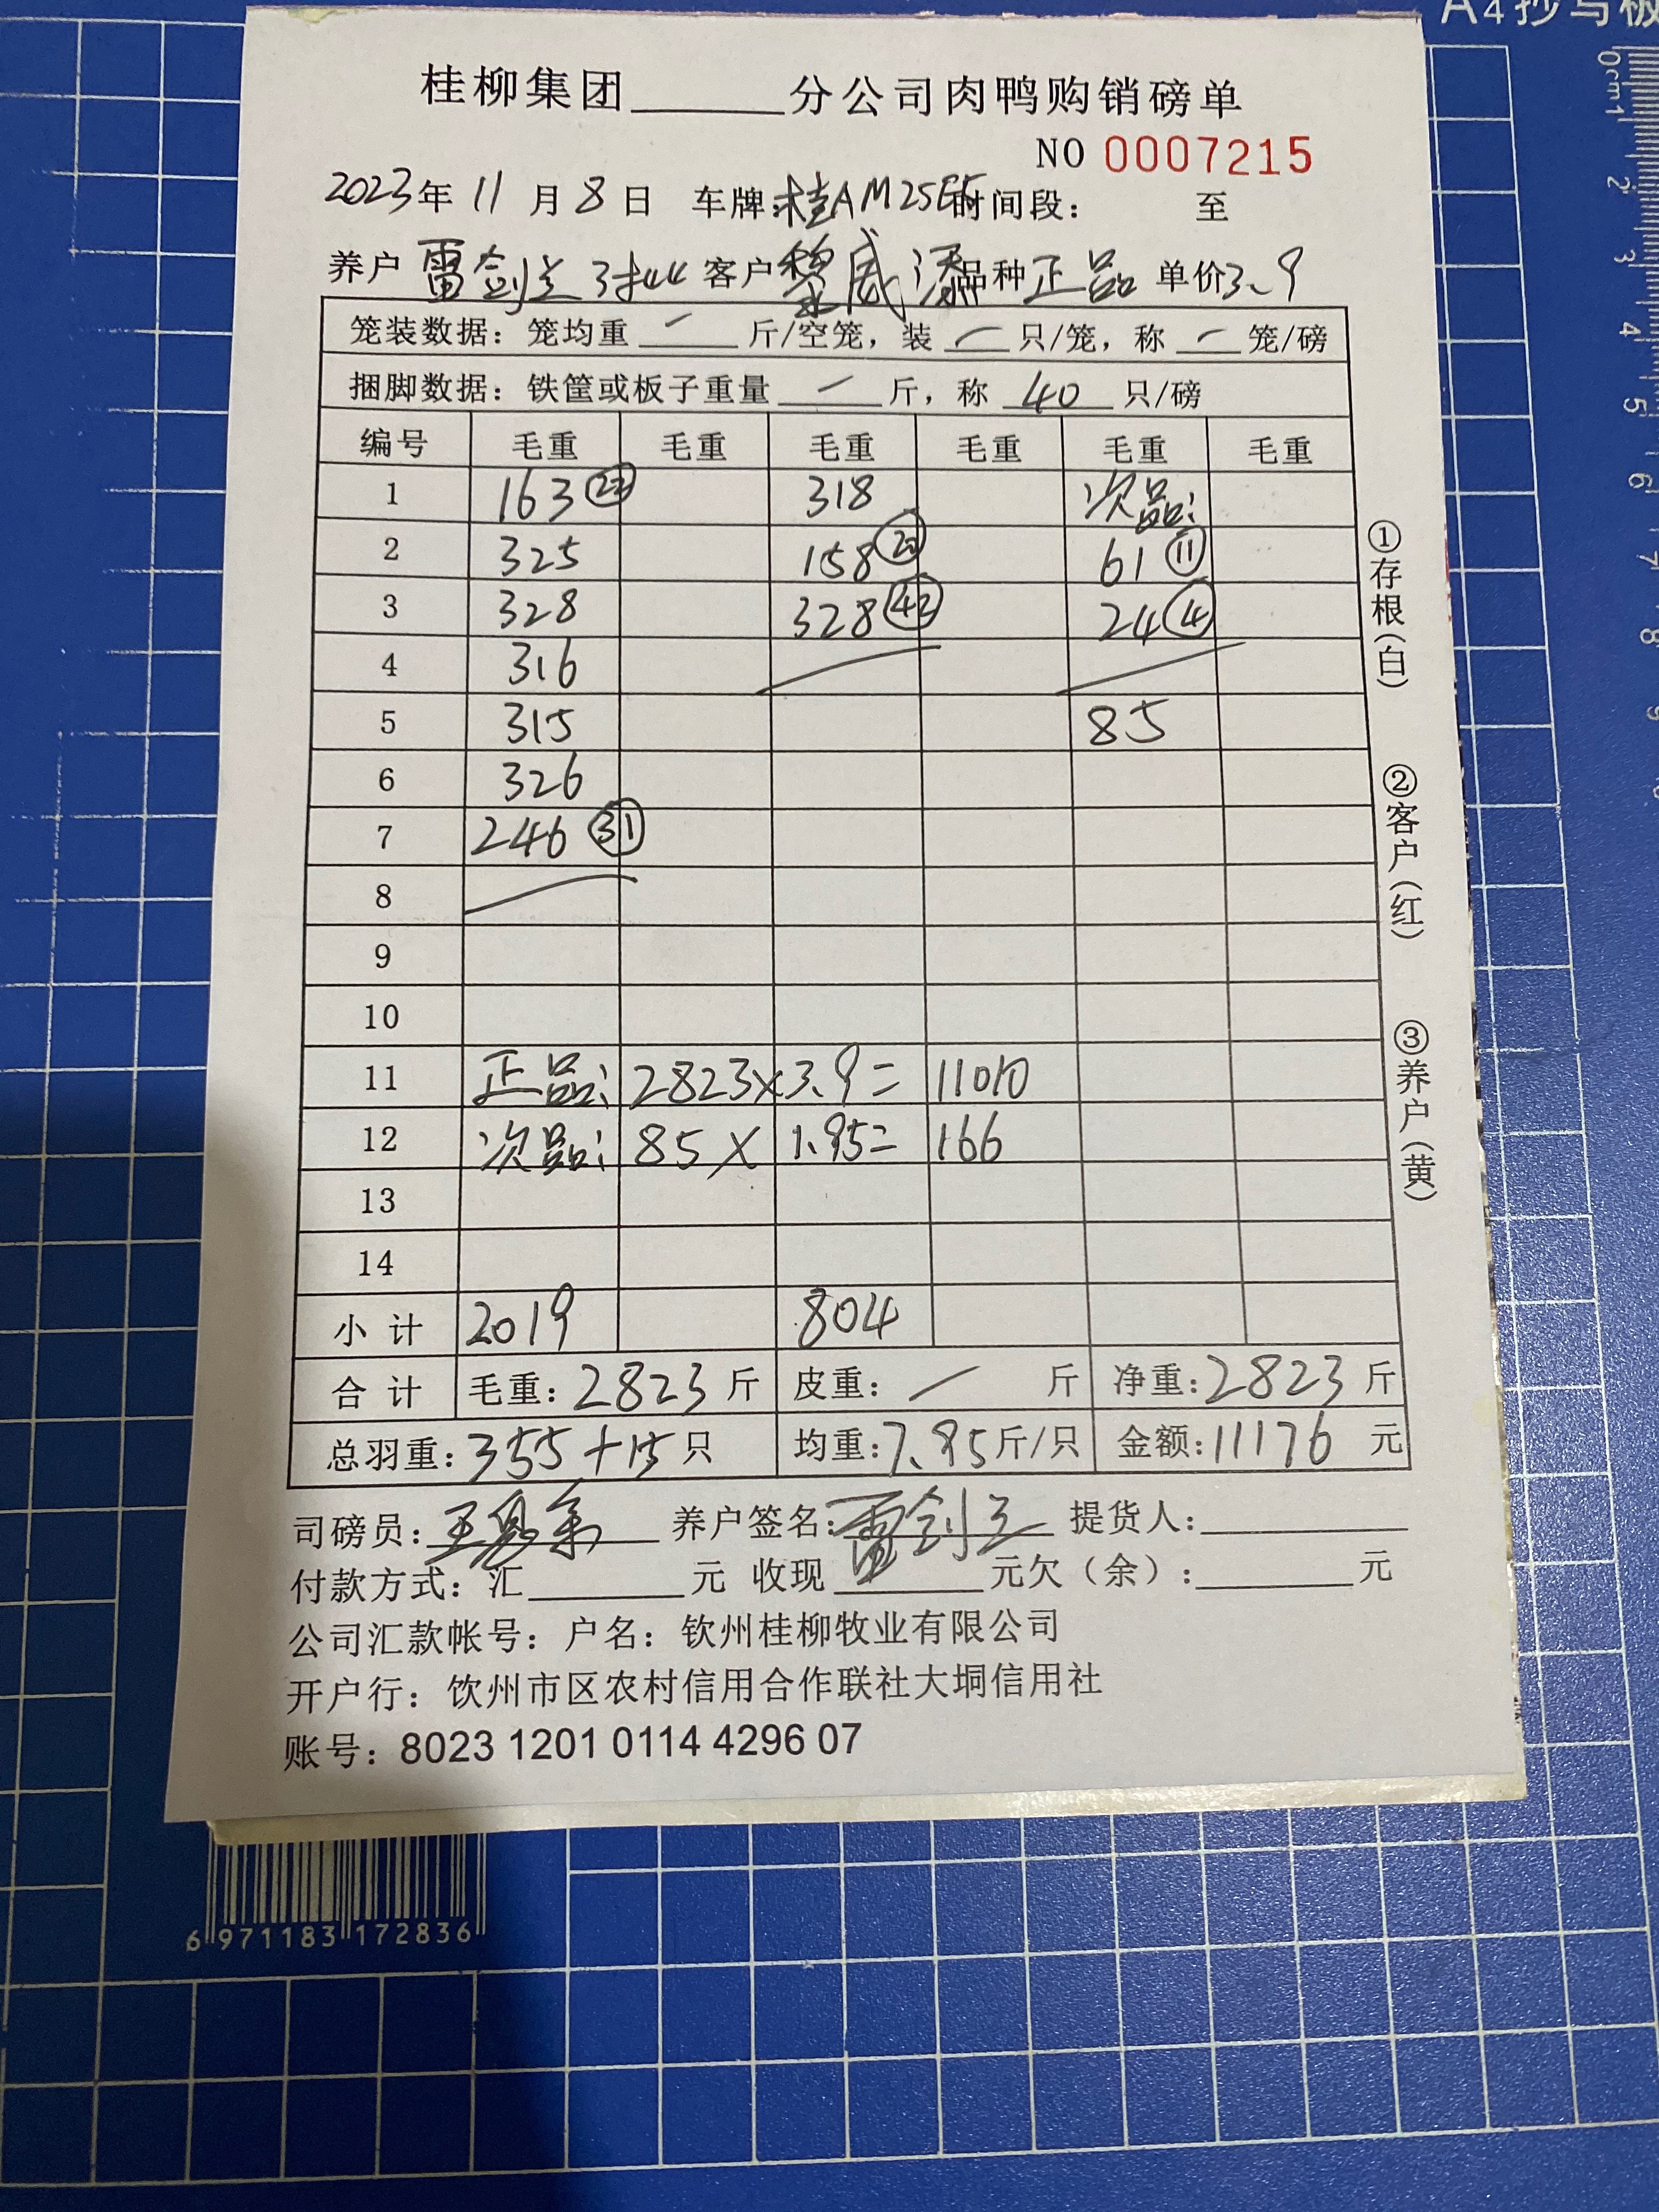 A4抄写板
0cm1 2 3 4 5 6 7 8 9
桂柳集团______分公司肉鸭购销磅单
NO 0007215
2023年11月8日 车牌:桂AM25E5时间段: 至
养户 雷剑兰 客户黎威添品种正品 单价3.9
笼装数据：笼均重 — 斤/空笼，装 — 只/笼，称 — 笼/磅
捆脚数据：铁筐或板子重量 — 斤，称 40 只/磅
编号 毛重 毛重 毛重 毛重 毛重 毛重
1 163 318 次品:
2 325 158 61⑪
3 328 328㊷ 24④
4 316
5 315 85
6 326
7 246㉛
8
9
10
11 正品: 2823×3.9= 11010
12 次品: 85× 1.95= 166
13
14
小计 2019 804
合计 毛重: 2823 斤 皮重: — 斤 净重: 2823 斤
总羽重: 355+15 只 均重: 7.95斤/只 金额: 11176 元
司磅员: 养户签名: 雷剑兰 提货人:
付款方式: 汇______元 收现______元欠（余）:______元
公司汇款帐号：户名：钦州桂柳牧业有限公司
开户行：饮州市区农村信用合作联社大垌信用社
账号：8023 1201 0114 4296 07
①存根(白) ②客户(红) ③养户(黄)
6 971183 172836